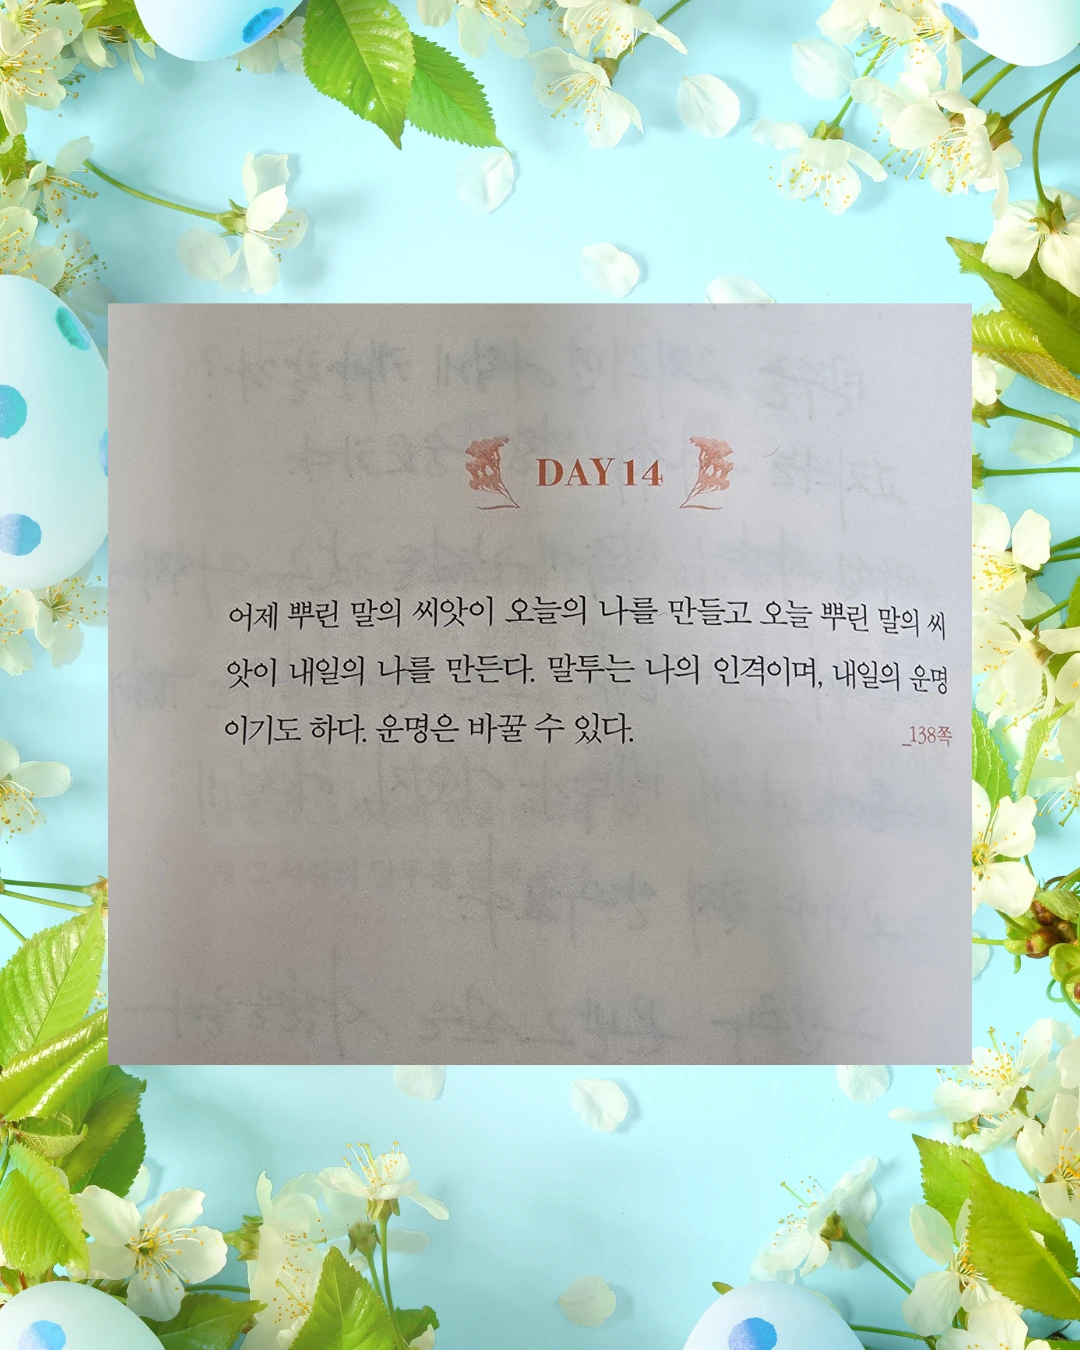 DAY 14
어제 뿌린 말의 씨앗이 오늘의 나를 만들고 오늘 뿌린 말의 씨
앗이 내일의 나를 만든다. 말투는 나의 인격이며, 내일의 운명
이기도 하다. 운명은 바꿀 수 있다.
_138쪽